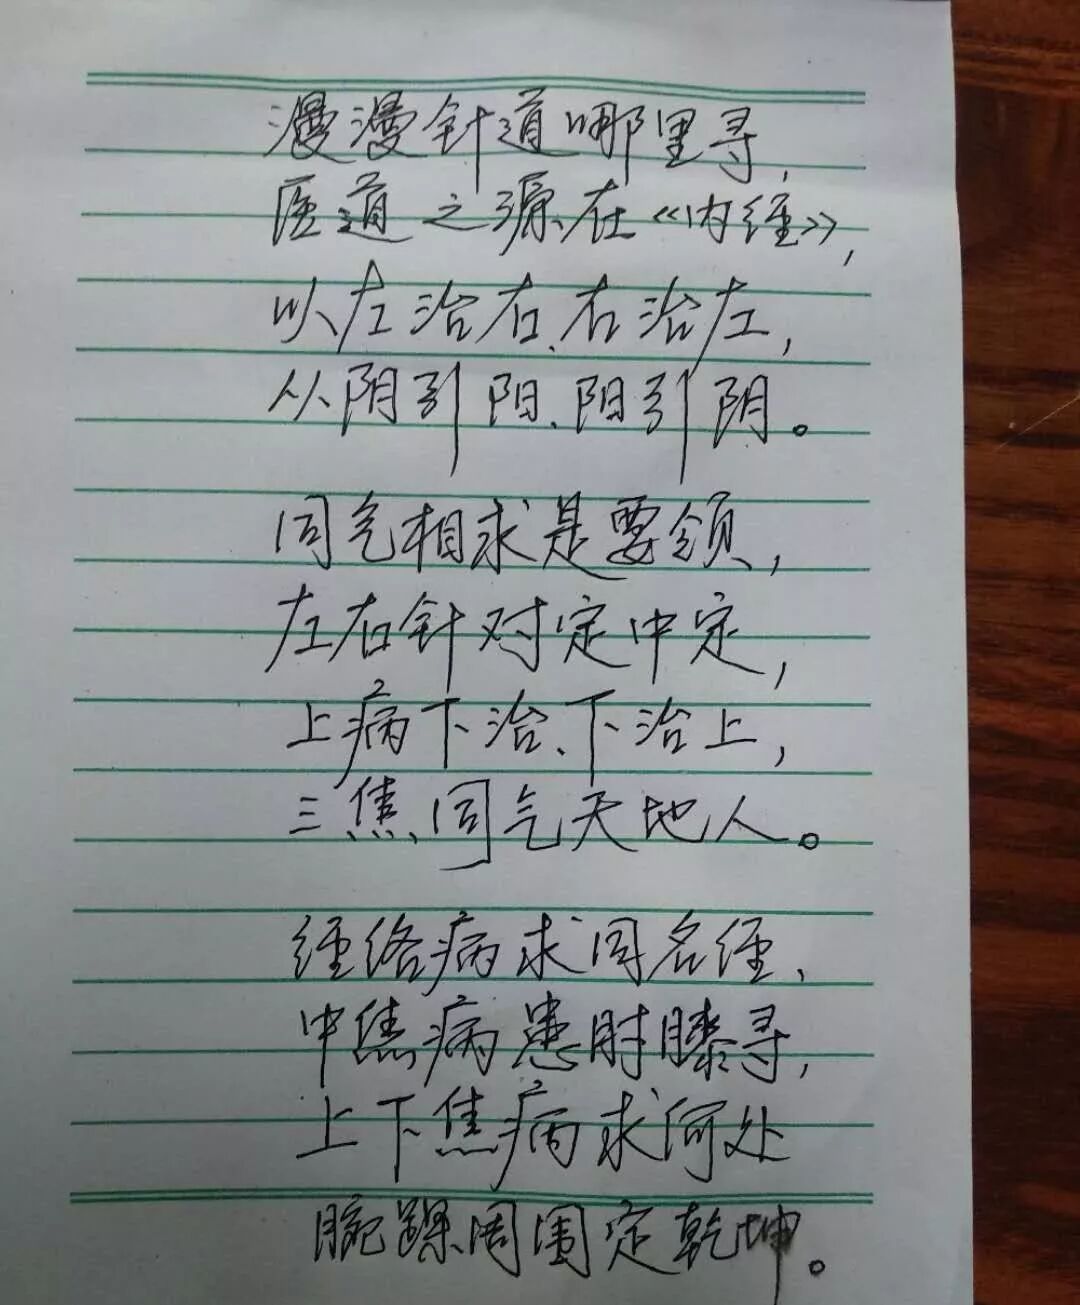 漫漫针道哪里寻,
医道之源在《内经》,
以左治右、右治左,
从阴引阳、阳引阴。
同气相求是要领,
左右针对定中定,
上病下治、下治上,
三焦同气天地人。
经络病求同名经,
中焦病患肘膝寻,
上下焦病求何处
腕踝周围定乾坤。